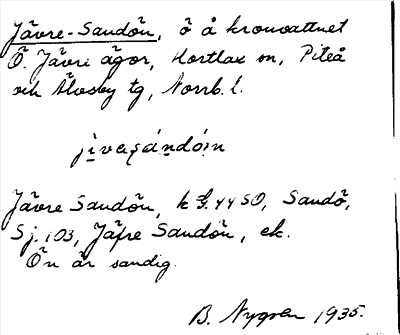 Jävre-Sandön, ö å kronvattnet
Ö. Jävri ägor, Hortlax sn, Piteå
och Älvsby tg, Norrb. l.
Jävre Sandön, k 44 SO, Sandö,
Sj. 103, Jäfre Sandön, ek.
Ön är sandig.
B. Nygren 1935.